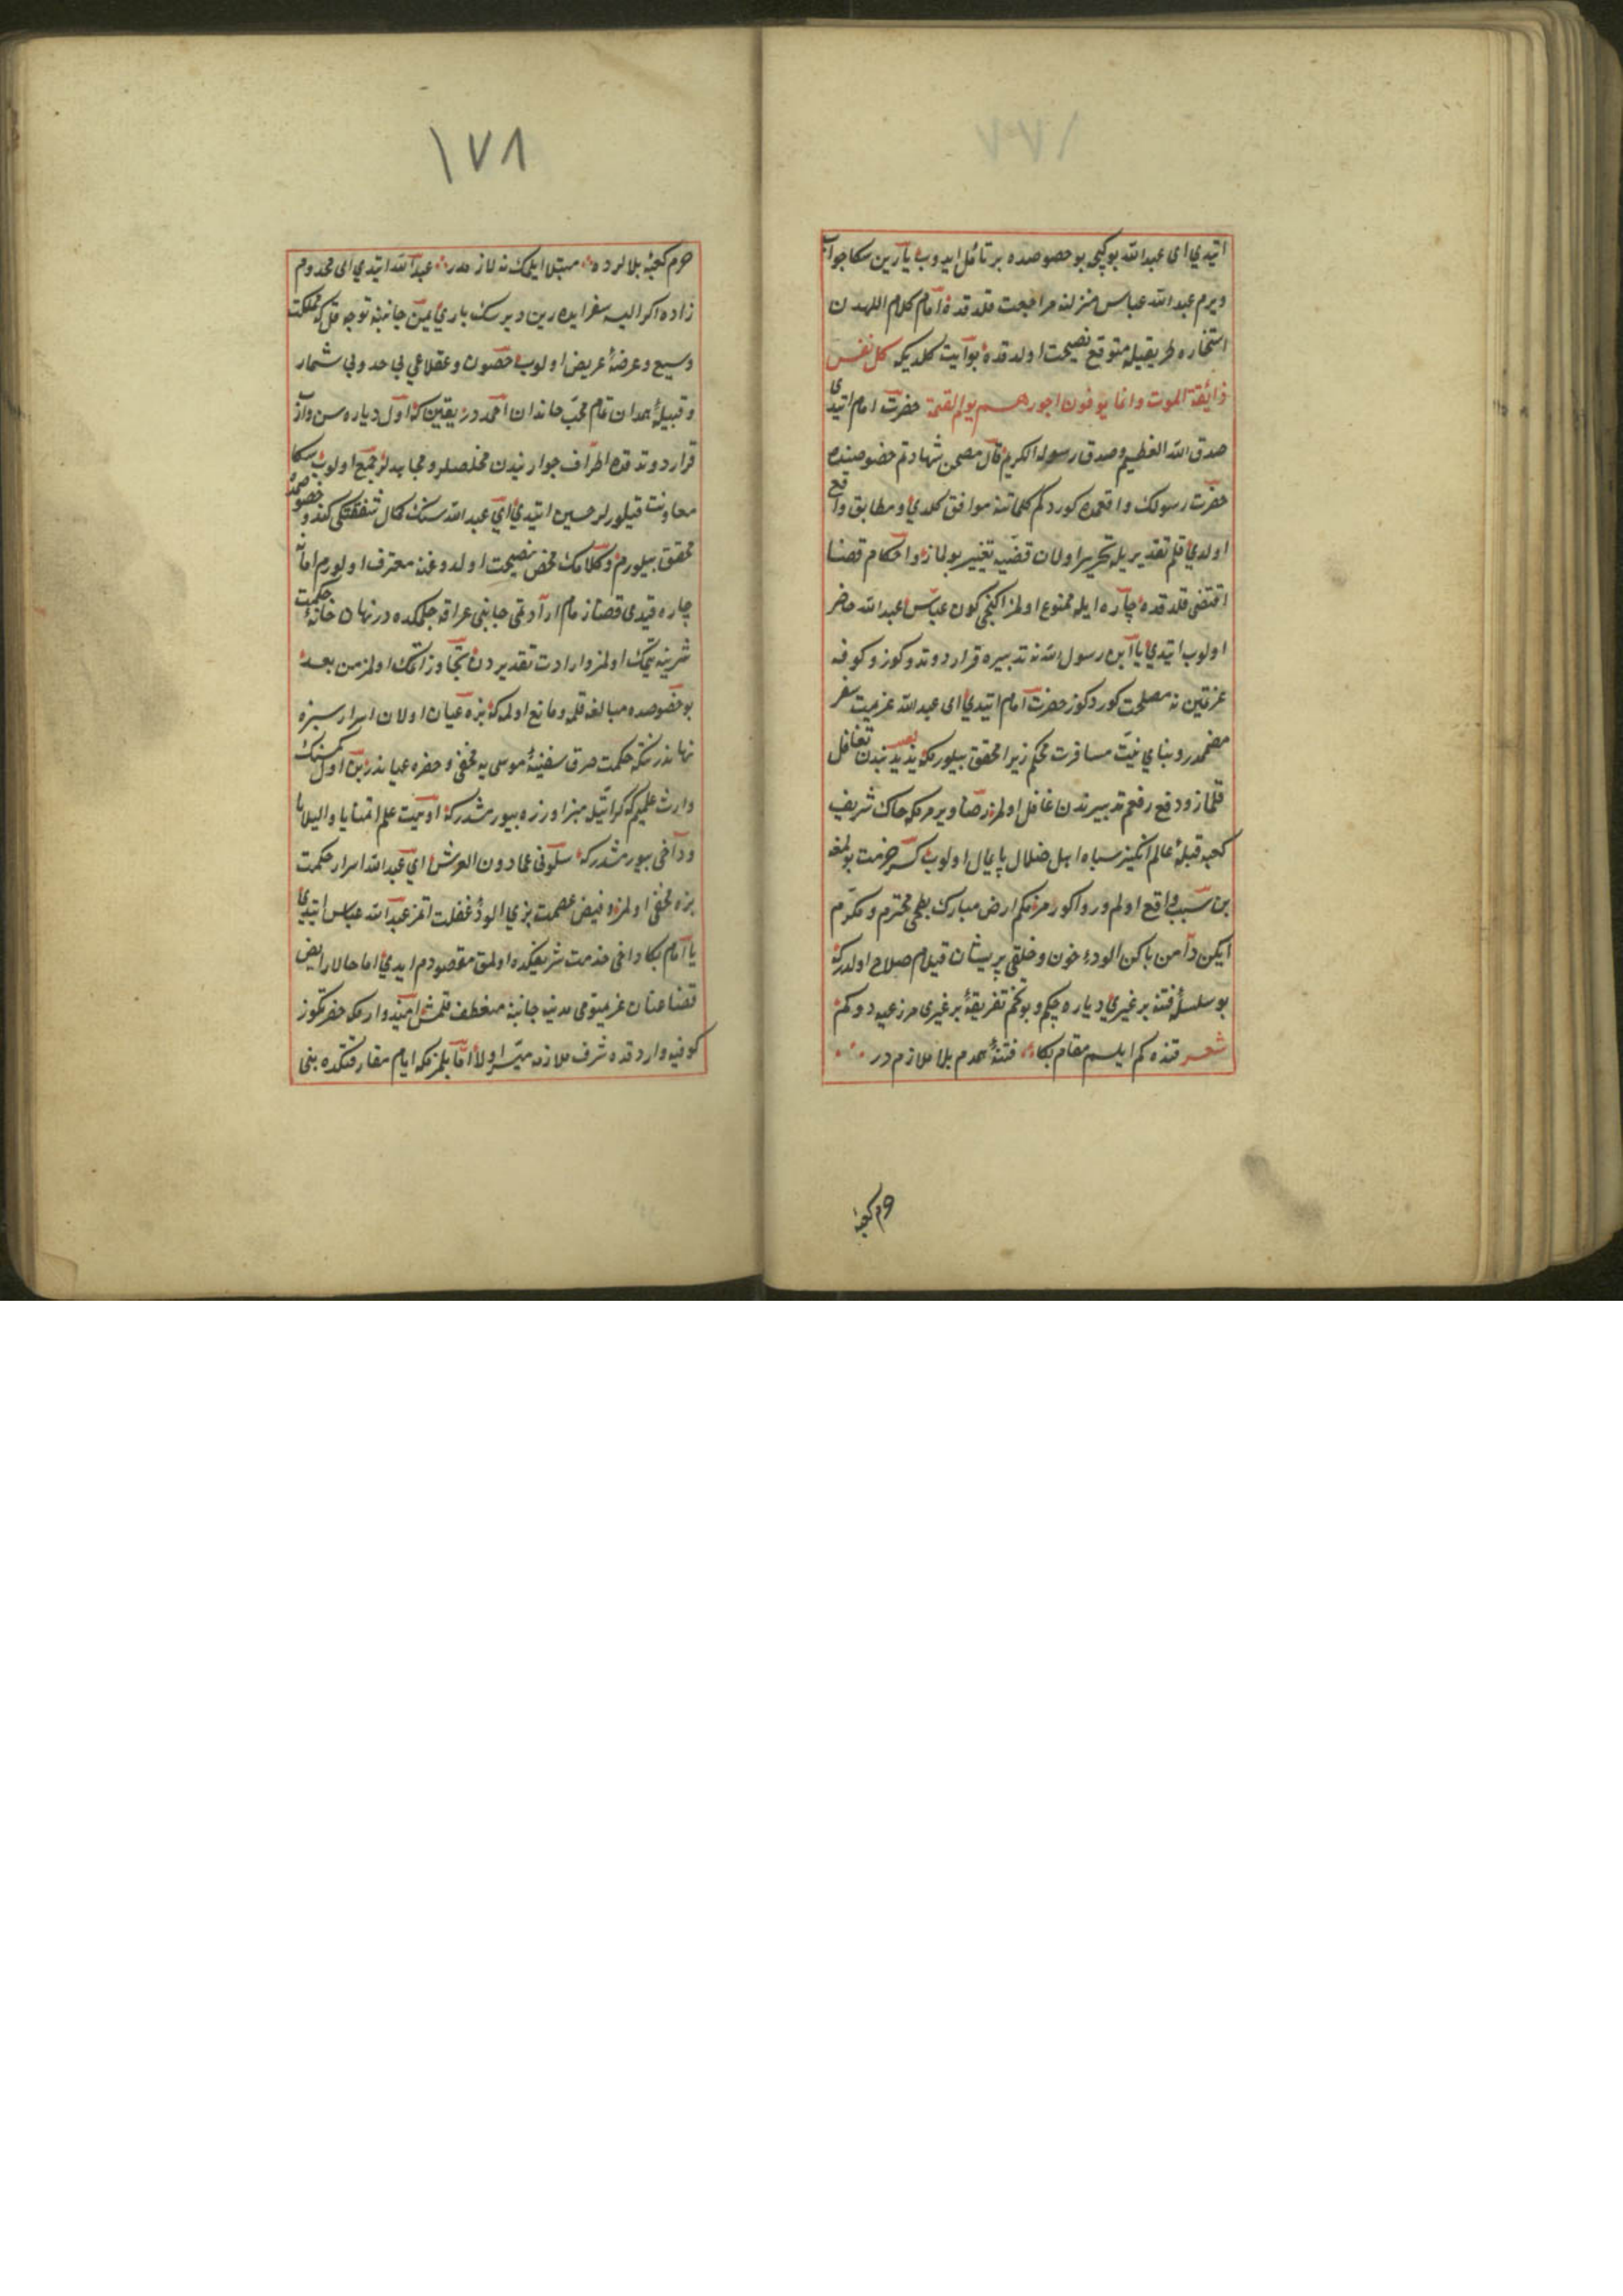 ایتدی ای عبدالله بو کیجه بو خصوصده بر تأمل ایدوب یارین سکا جواب
ویرم عبدالله عباس منزلنه مراجعت قلدقده امام کلام اللهدن
استخاره طریقیله متوقع نصیحت اولدقده بو آیت کلدیکه کل نفس
ذائقة الموت وانما یوفون اجورهم یوم القیمة حضرت امام ایتدی
صدق الله العظیم وصدق رسوله الکریم قال مصحف شهادتم خصوصنده
حضرت رسولك واقعه‌ده کوردکم کلماتنه موافق کلدی و مطابق واقع
اولدی قلم تقدیریله تحریر اولان قضیه تغییر بولماز واحکام قضا
اقتضی قلدقده چاره ایله ممنوع اولمز ایکنجی کون عباس عبدالله حاضر
اولوب ایتدی یا ابن رسول الله نه تدبیره قرار دوتدوکوز و کوفه
عزمتین نه مصلحت کوردکوز حضرت امام ایتدی ای عبدالله عزیمت سفر
مصممدر و بنای نیت مسافرت محکم زیرا محقق بیلورمکه یزید بندن تغافل
قلماز و دفع رفعم تدبیرندن غافل اولمز رضا ویرمزمکه خاك شریف
کعبه قبلهٔ عالم انکیز سپاه اهل ضلال پایمال اولوب کسر حرمت بولمغه
بن سبب واقع اولم و روا کورمزمکم ارض مبارك بطحی محترم و مکرم
ایکن دامن پاکن الودهٔ خون و خلقی پریشان قیلام صلاح اولدرکه
بو سلسلهٔ فتنه بر غیری دیاره چکم و بو تخم تفریقهٔ بر غیری مرزعیه دوکم
شعر قنده کم ایلسم مقام بکا فتنهٔ همدم بلا ملازمدر
حرم کعبهٔ
١٧٨
حرم کعبهٔ بلالرده مبتلا ایلمك نه لازمدر عبدالله ایتدی ای مخدوم
زاده اکر البته سفر ایده‌رین دیرسك باری یمن جانبنه توجه قل که مملکت
وسیع و عرضهٔ عریض اولوب حصون و عقلاعی بی حد و بی شمار
و قبیلهٔ همدان تمام محب خاندان احمددر یقین که اول دیاره سن واروب
قرار دوتدقده اطراف جوارندن مخلصلر و مجاهدلر جمع اولوب سکا
معاونت قیلورلر حسین ایتدی ای عبدالله سنك کمال شفقتکی کندو خصوصمده
محقق بیلورم و کلامك محض نصیحت اولدوغنه معترف اولورم اما نه
چاره قید قضا زمام ارادتمی جانب عراقه چکمکده در نهانخانهٔ حکمت
شربنه یتمك اولمز و ارادت تقدیردن تجاوز اتمك اولمز من بعد
بو خصوصده مبالغه قلمه و مانع اولمه که بزه عیان اولان اسرار سیزه
نهاندر نته‌که حکمت خرق سفینهٔ موسی‌یه مخفی و خضره عیاندر بن اول کمسنك
وارث علمیم که کراتیله منبر اوزره بیورمشدرکه اوتیت علم المنایا والبلایا
و دآخی بیورمشدرکه سلونی عما دون العرش ای عبدالله اسرار حکمت
بزه مخفی اولمز و فیض عصمت بزی الودهٔ غفلت اتمز عبدالله عباس ایتدی
یا امام بکا داخی خدمت شریفکده اولمق مقصودم ایدی اما حالا رایض
قضا عنان عزیمتومی مدینه جانبنه منعطف قلمش امیدوارمکه حضرتکوز
کوفیه وارد قده شرف ملازمه میسر اولا اما بلمزمکه ایام مفارقتکده بنی